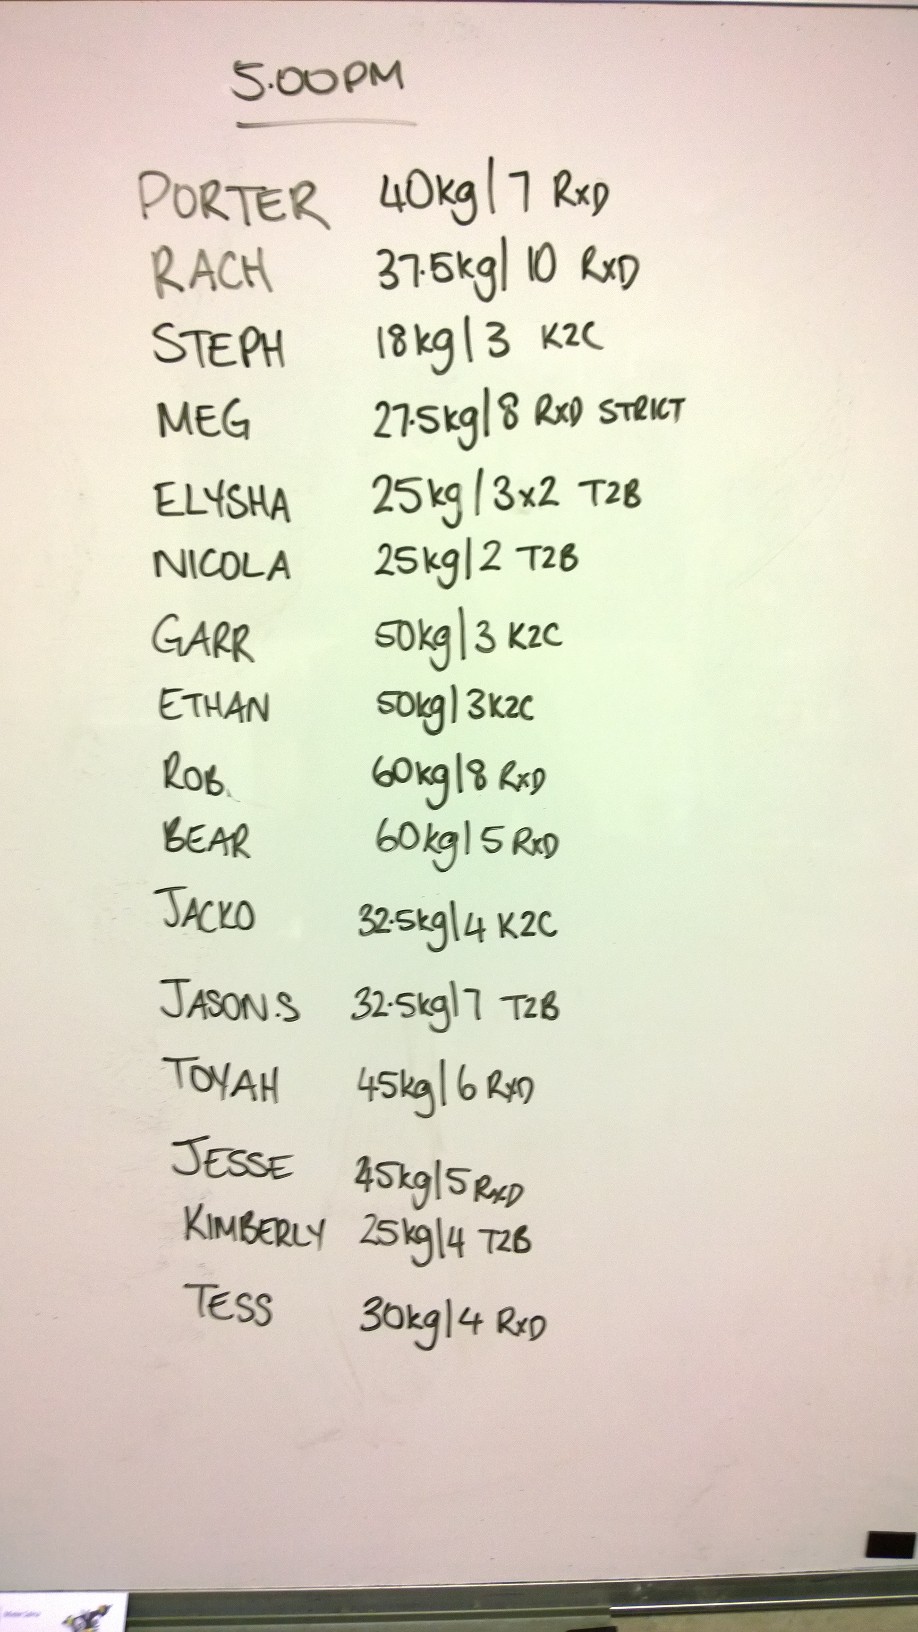 5.00PM
PORTER 40kg/7 RxD
RACH 37.5kg/10 RxD
STEPH 18kg/3 K2C
MEG 27.5kg/8 RxD STRICT
ELYSHA 25kg/3x2 T2B
NICOLA 25kg/2 T2B
GARR 50kg/3 K2C
ETHAN 50kg/3 K2C
ROB. 60kg/8 RxD
BEAR 60kg/5 RxD
JACKO 32.5kg/4 K2C
JASON.S 32.5kg/7 T2B
TOYAH 45kg/6 RxD
JESSE 45kg/5 RxD
KIMBERLY 25kg/4 T2B
TESS 30kg/4 RxD